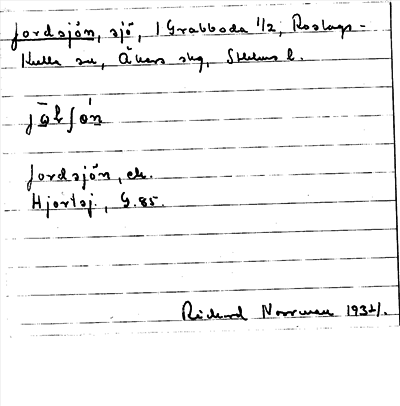 Jordsjön, sjö, 1 Grabboda 1/2, Roslags-
Kulla sn, Åkers skg, Sthlms l.
Jordsjön, ek.
Hjortsj., G.85.
Rickard Norrman 1932/.